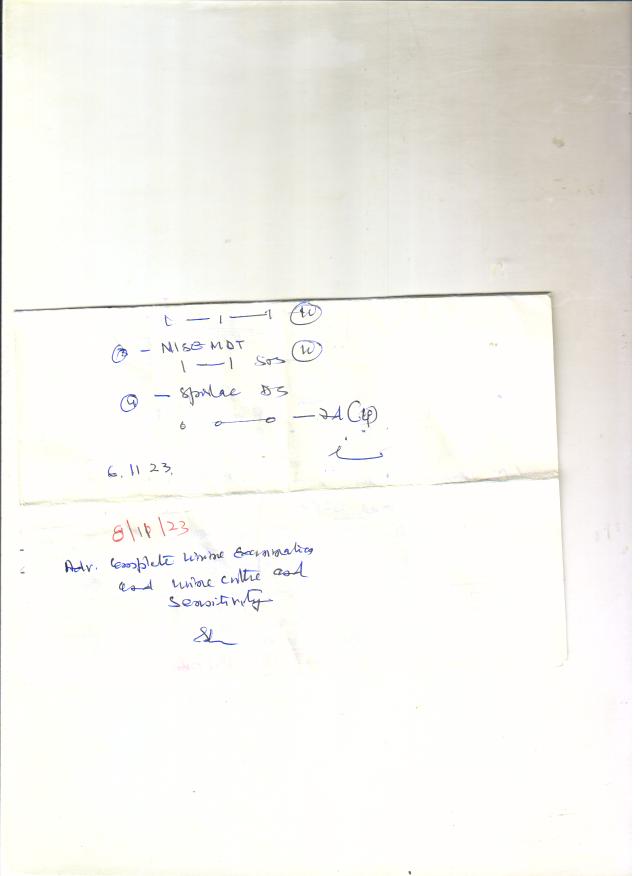 1 — 1 — 1 (10)
(3) – NISE MDT (10)
1 — 1 SOS
(4) — Sporlac DS
6.11 23.
8/11/23
Adv. Complete urine Examination
and urine cultre and
Sensitivity